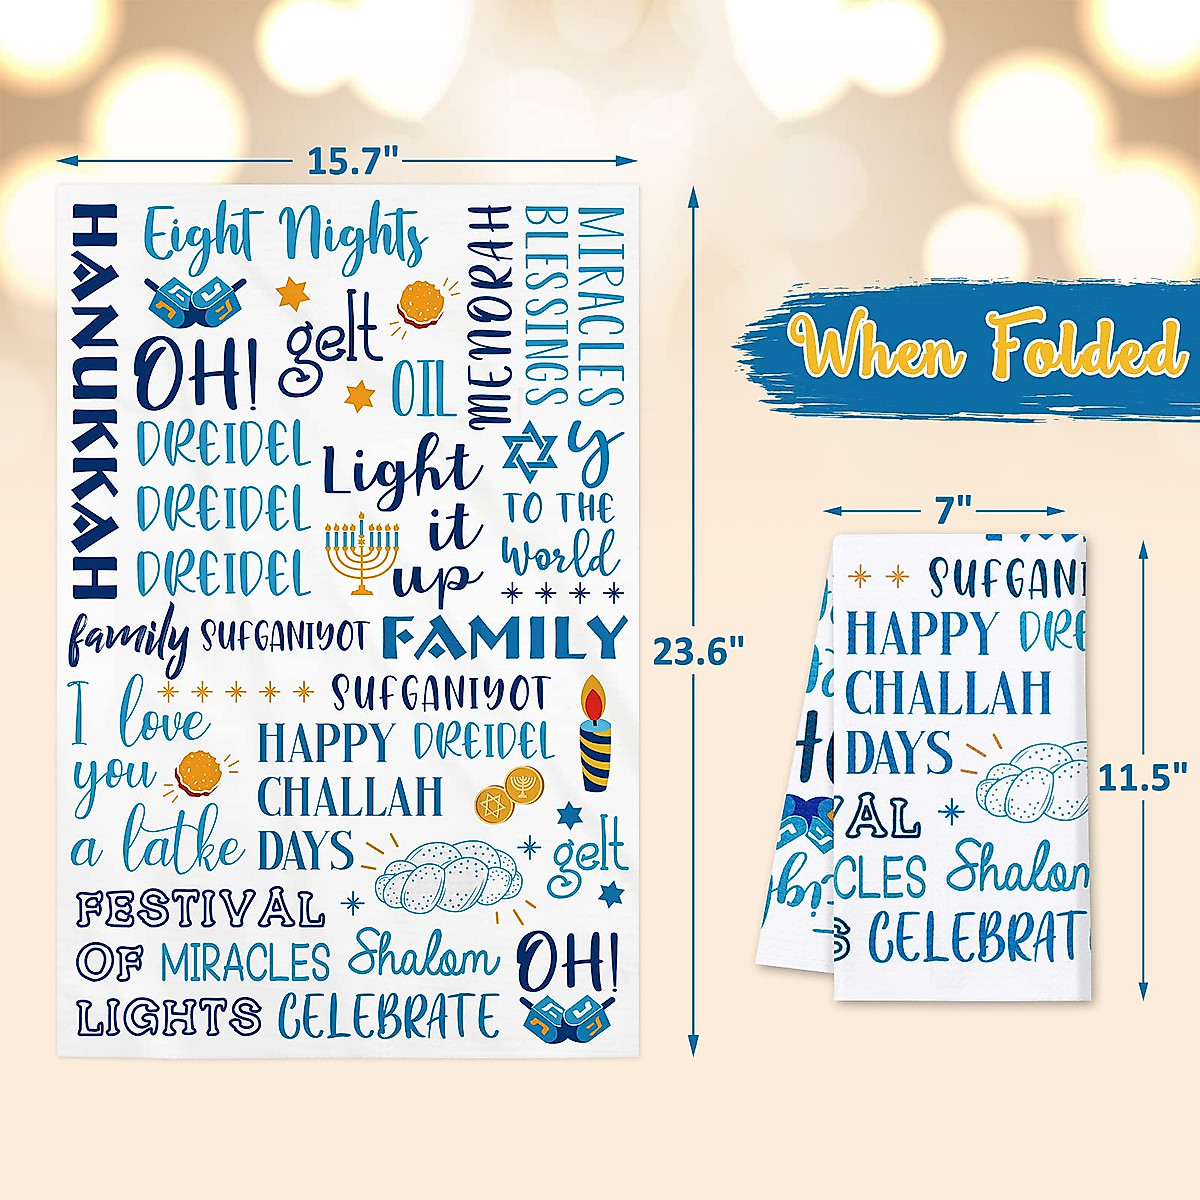 15.7"
HANUKKAH
Eight Nights
MENORAH
BLESSINGS
MIRACLES
gelt
OH!
OIL
DREIDEL
DREIDEL
DREIDEL
Light
it
up
y
TO THE
World
family
SUFGANIYOT
FAMILY
I love
you
a latke
SUFGANIYOT
HAPPY DREIDEL
CHALLAH
DAYS
gelt
FESTIVAL
OF MIRACLES Shalom
LIGHTS CELEBRATE
OH!
23.6"
When Folded
7"
SUFGANI
HAPPY DRE
CHALLAH
DAYS
VAL
CLES Shalom
S CELEBRAT
11.5"